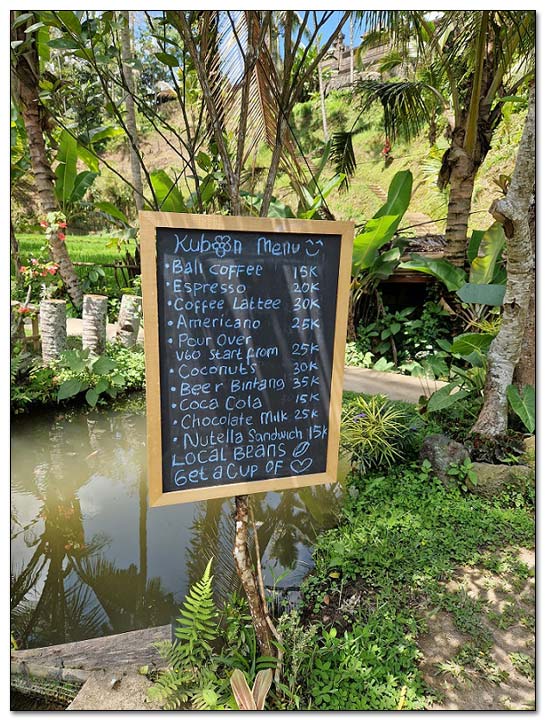 Kuboon Menu
• Bali coffee 15K
• Espresso 20K
• Coffee Lattee 30K
• Americano 25K
• Pour Over
V60 Start from 25K
• Coconuts 30K
• Beer Bintang 35K
• Coca Cola 15K
• Chocolate Milk 25K
• Nutella Sandwich 15K
LOCAL BEANS
Get a CUP OF